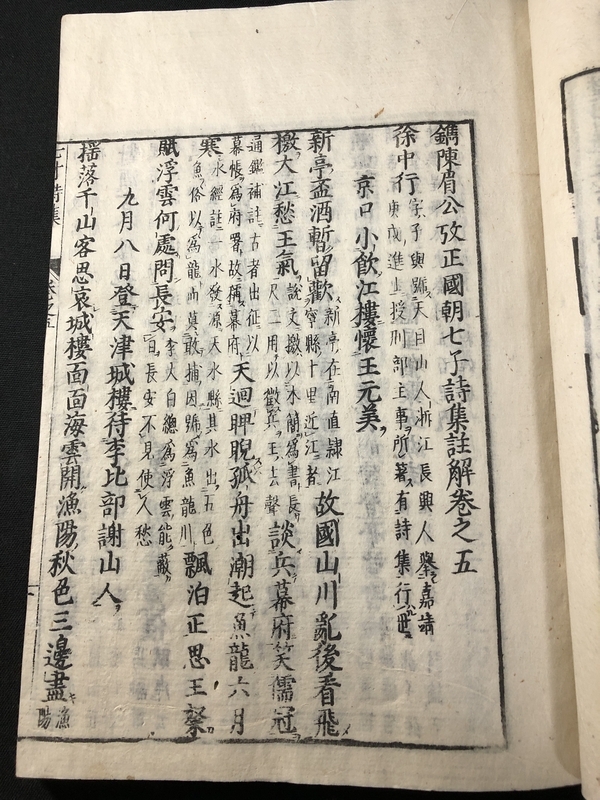 鐫陳眉公攷正國朝七子詩集註解卷之五
徐中行 字子與號天目山人浙江長興人舉嘉靖庚戌進士授刑部主事所著有詩集行世
京口小飲江樓懷王元美
新亭盃酒暫留歡 新亭在南直隷江寧縣十里近江者 故國山川亂後看飛
檄大江愁王氣 說文檄以木簡爲書長尺二用以徵兵王去聲 談兵幕府笑儒冠
通鑑補註古者出征以幕帳爲府署故稱幕府 天迥睥睨孤舟出潮起魚龍六月
寒 水經註一水發源天水縣其水出五色魚俗以爲龍而莫敢捕因號爲魚龍川 飄泊正思王粲
賦浮雲何處問長安 李太白總爲浮雲能蔽日長安不見使人愁
九月八日登天津城樓待李比部謝山人
揺落千山客思哀城樓面面海雲開漁陽秋色三邊盡 漁陽
七子詩集
卷之五